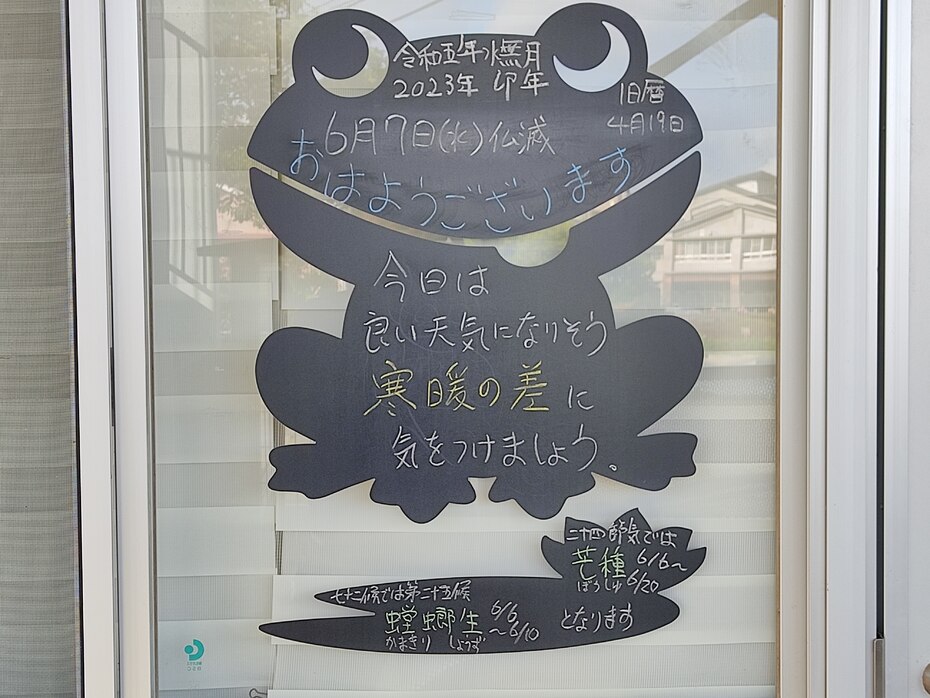 令和五年水無月
2023年 卯年
旧暦
4月19日
6月7日(水)仏滅
おはようございます
今日は
良い天気になりそう
寒暖の差に
気をつけましょう。
二十四節気では
芒種 6/6～
ぼうしゅ 6/20
七十二候では第二十五候
螳螂生 6/6
～6/10
かまきり しょうず
となります